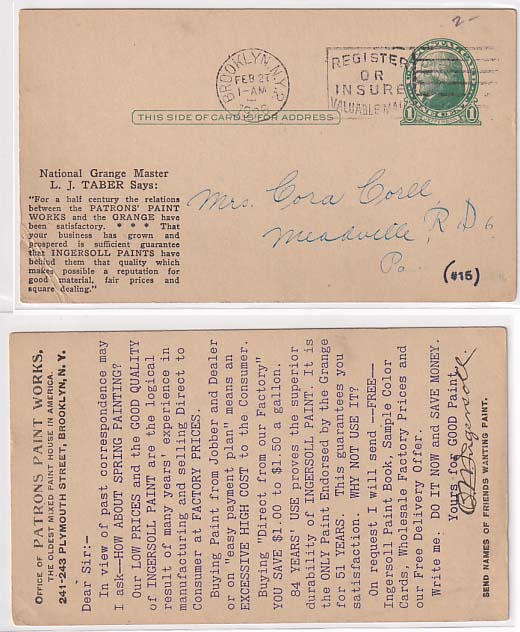 2-
BROOKLYN, N.Y.
FEB 27
1-AM
REGISTER
OR
INSURE
VALUABLE MAIL
THIS SIDE OF CARD IS FOR ADDRESS
1
1
National Grange Master
L. J. TABER Says:
"For a half century the relations
between the PATRONS' PAINT
WORKS and the GRANGE have
been satisfactory. * * * That
your business has grown and
prospered is sufficient guarantee
that INGERSOLL PAINTS have
behind them that quality which
makes possible a reputation for
good material, fair prices and
square dealing."
Mrs. Cora Corll
Meadville, R D 6
Pa.
(#15)
OFFICE OF PATRONS PAINT WORKS,
THE OLDEST MIXED PAINT HOUSE IN AMERICA.
241-243 PLYMOUTH STREET, BROOKLYN, N. Y.
Dear Sir:-
In view of past correspondence may
I ask—HOW ABOUT SPRING PAINTING?
Our LOW PRICES and the GOOD QUALITY
of INGERSOLL PAINT are the logical
result of many years' experience in
manufacturing and selling Direct to
Consumer at FACTORY PRICES.
Buying Paint from Jobber and Dealer
or on "easy payment plan" means an
EXCESSIVE HIGH COST to the Consumer.
Buying "Direct from our Factory"
YOU SAVE $1.00 to $1.50 a gallon.
84 YEARS' USE proves the superior
durability of INGERSOLL PAINT. It is
the ONLY Paint Endorsed by the Grange
for 51 YEARS. This guarantees you
satisfaction. WHY NOT USE IT?
On request I will send —FREE—
Ingersoll Paint Book, Sample Color
Cards, Wholesale Factory Prices and
our Free Delivery Offer.
Write me. DO IT NOW and SAVE MONEY.
Yours for GOOD Paint
Ingersoll.
SEND NAMES OF FRIENDS WANTING PAINT.